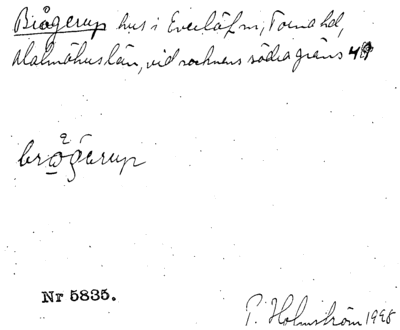 Brågerup hus i Everlöf sn, Torna hd,
Malmöhus län, vid socknens södra gräns
brågerup
Nr 5835.
P. Holmström 1928